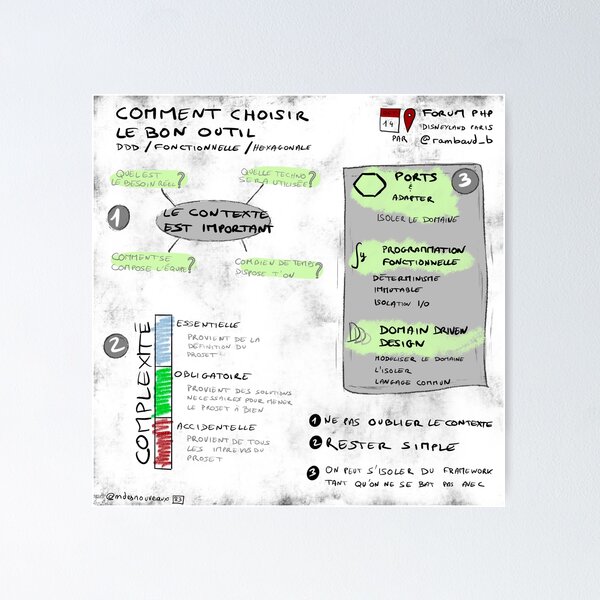 COMMENT CHOISIR
LE BON OUTIL
DDD / FONCTIONNELLE / HEXAGONALE
14
FORUM PHP
DISNEYLAND PARIS
PAR @rambaud_b
1
QUEL EST
LE BESOIN RÉEL ?
QUELLE TECHNO
SERA UTILISÉE ?
LE CONTEXTE
EST IMPORTANT
COMMENT SE
COMPOSE L'ÉQUIPE ?
COMBIEN DE TEMPS
DISPOSE T'ON ?
2
COMPLEXITÉ
ESSENTIELLE
PROVIENT DE LA
DÉFINITION DU
PROJET
OBLIGATOIRE
PROVIENT DES SOLUTIONS
NÉCESSAIRES POUR MENER
LE PROJET À BIEN
ACCIDENTELLE
PROVIENT DE TOUS
LES IMPRÉVUS DU
PROJET
3
PORTS
&
ADAPTER
ISOLER LE DOMAINE
PROGRAMMATION
FONCTIONNELLE
DÉTERMINISME
IMMUTABLE
ISOLATION I/O
DOMAIN DRIVEN
DESIGN
MODÉLISER LE DOMAINE
L'ISOLER
LANGAGE COMMUN
1 NE PAS OUBLIER LE CONTEXTE
2 RESTER SIMPLE
3 ON PEUT S'ISOLER DU FRAMEWORK
TANT QU'ON NE SE BAT PAS AVEC
@mdesnouveaux 23